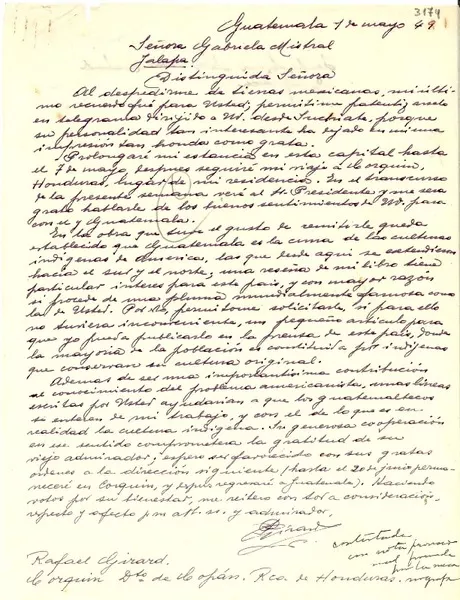 3174
Guatemala 1 de mayo 49
Señora Gabriela Mistral
Jalapa
Distinguida Señora
Al despedirme de tierras mexicanas, mi últi-
mo recuerdo fui para Usted, permitíme patentizarselo
en telegrama dirijido a Ud. desde Suchiate, porque
su personalidad tan interesante ha dejado en mi una
impresión tan honda como grata.
Prolongaré mi estancia en esta capital hasta
el 7 de mayo, despues seguiré mi viaje a Corquin,
Honduras, lugar de mi residencia. En el transcurso
de la presente semana veré al Sr. Presidente y me será
grato hablarle de los buenos sentimientos de Ud. para
con él y Guatemala.
En la obra que tuve el gusto de remitirle queda
establecido que Guatemala es la cuna de las culturas
indigenas de America, las que desde aqui se extendieron
hacia el sur y el norte; una reseña de mi libro tiene
particular interes para este país, y con mayor razón
si procede de una pluma mundialmente famosa como
la de Usted. Por ello, permitome solicitarle, si para ello
no tuviera inconveniente, un pequeño articulo para
que yo pueda publicarlo en la prensa de este país, donde
la mayoria de la poblacion es constituida por indigenas
que conservan su cultura original.
Ademas de ser una importantisima contribución
al conocimiento del problema americanista, unas lineas
escritas por Usted ayudarian a que los guatemaltecos
se enteren de mi trabajo, y con el de lo que es en
realidad la cultura indigena. Su generosa cooperación
en ese sentido comprometera la gratitud de su
viejo admirador, espero ser favorecido con sus gratas
ordenes a la dirección siguiente (hasta el 20 de junio perma-
neceré en Corquin, y despues regresaré a Guatemala). Haciendo
votos por su bienestar, me reitero con toda consideración,
respeto y afecto su att. ss. y admirador,
Girard
contestada
con nota
Rafael Girard.
Corquin Dto de Copán. Rca. de Honduras.